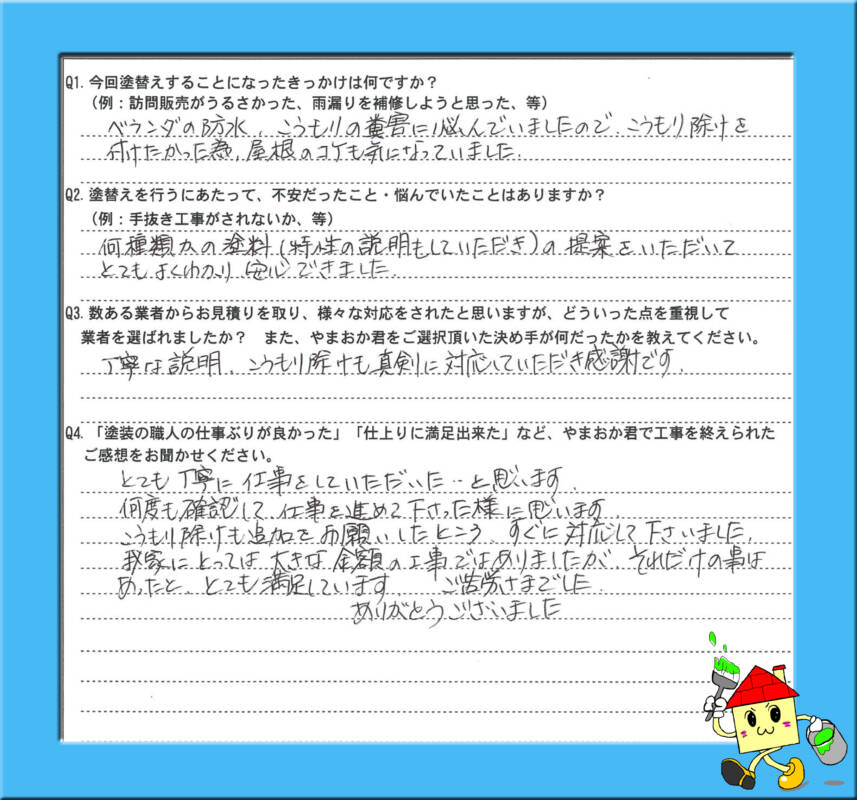 Q1. 今回塗替えすることになったきっかけは何ですか？
（例：訪問販売がうるさかった、雨漏りを補修しようと思った、等）
ベランダの防水、こうもりの糞害に悩んでいましたので、こうもり除けを
付けたかった為、屋根のコケも気になっていました。
Q2. 塗替えを行うにあたって、不安だったこと・悩んでいたことはありますか？
（例：手抜き工事がされないか、等）
何種類かの塗料（特性の説明もしていただき）の提案をいただいて
とてもよくわかり安心できました。
Q3. 数ある業者からお見積りを取り、様々な対応をされたと思いますが、どういった点を重視して
業者を選ばれましたか？　また、やまおか君をご選択頂いた決め手が何だったかを教えてください。
丁寧な説明、こうもり除けも真剣に対応していただき感謝です。
Q4. 「塗装の職人の仕事ぶりが良かった」「仕上りに満足出来た」など、やまおか君で工事を終えられた
ご感想をお聞かせください。
とても丁寧に仕事をしていただいた‥と思います。
何度も確認して仕事を進めて下さった様に思います。
こうもり除けも追加をお願いしたところ、すぐに対応して下さいました。
我家にとっては大きな金額の工事ではありましたが、それだけの事は
あったと、とても満足しています　ご苦労さまでした。
ありがとうございました